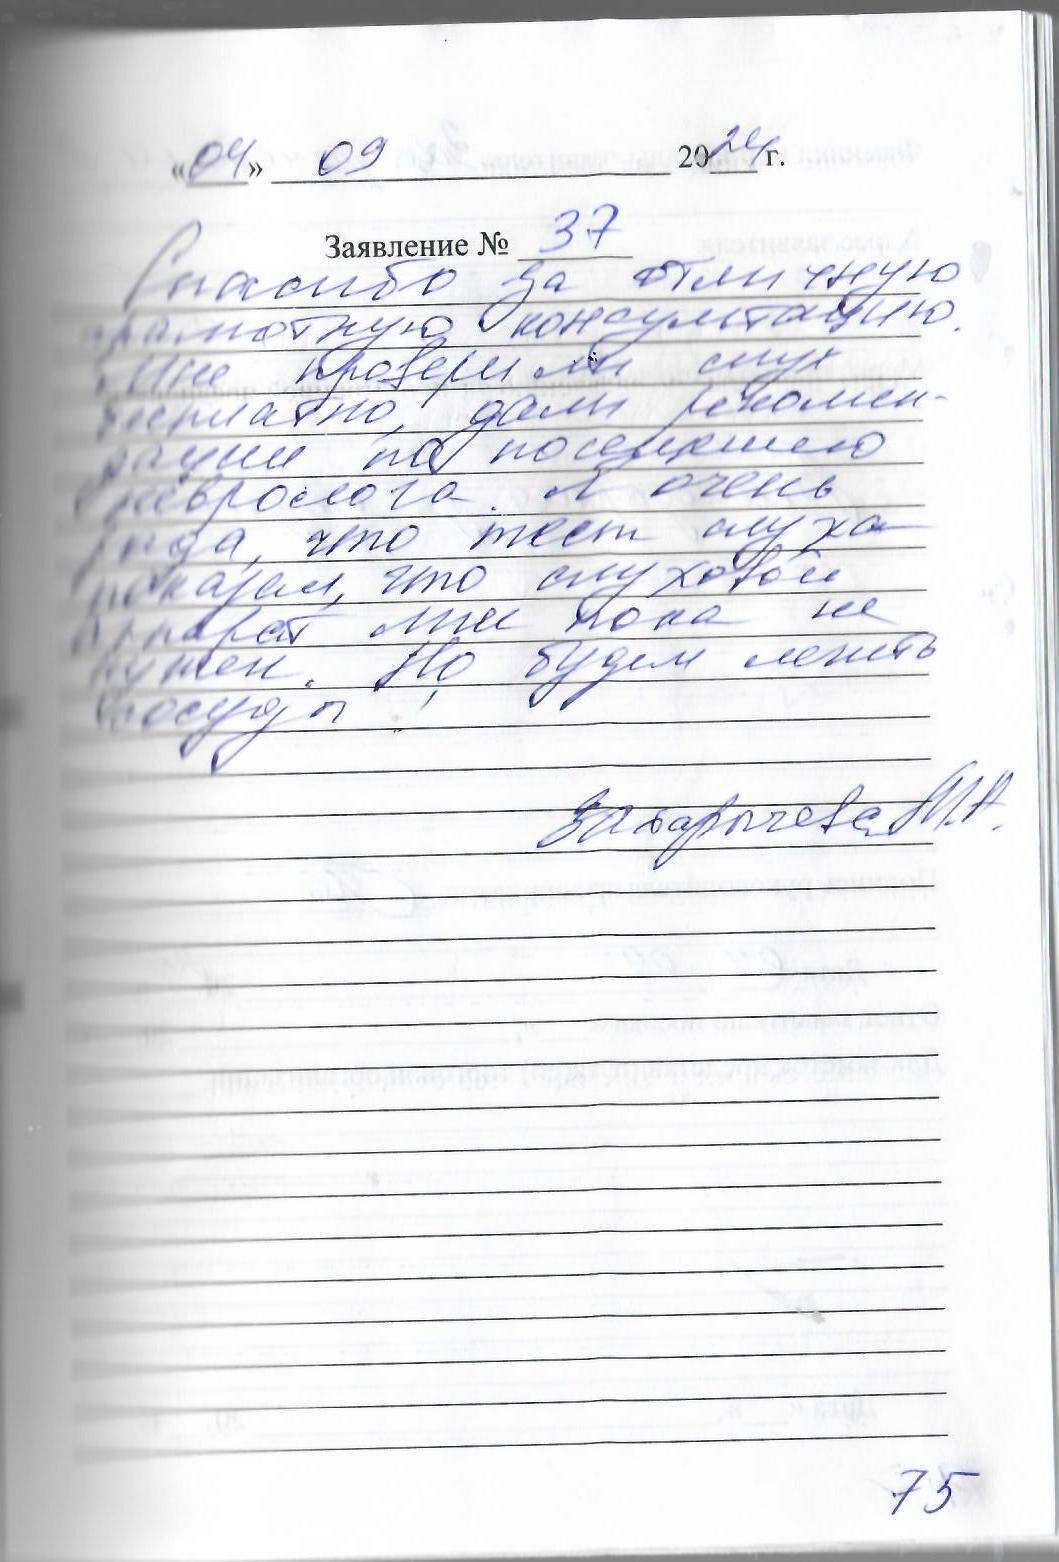 «04» 09 2024 г.
Заявление № 37
Спасибо за отличную
грамотную консультацию.
Мне проверили слух
бесплатно, дали рекомен-
дации по посещению
невролога. Я очень
рада, что тест слуха
показал, что слуховой
аппарат мне пока не
нужен. Но будем лечить
сосуды!
М.А.
75